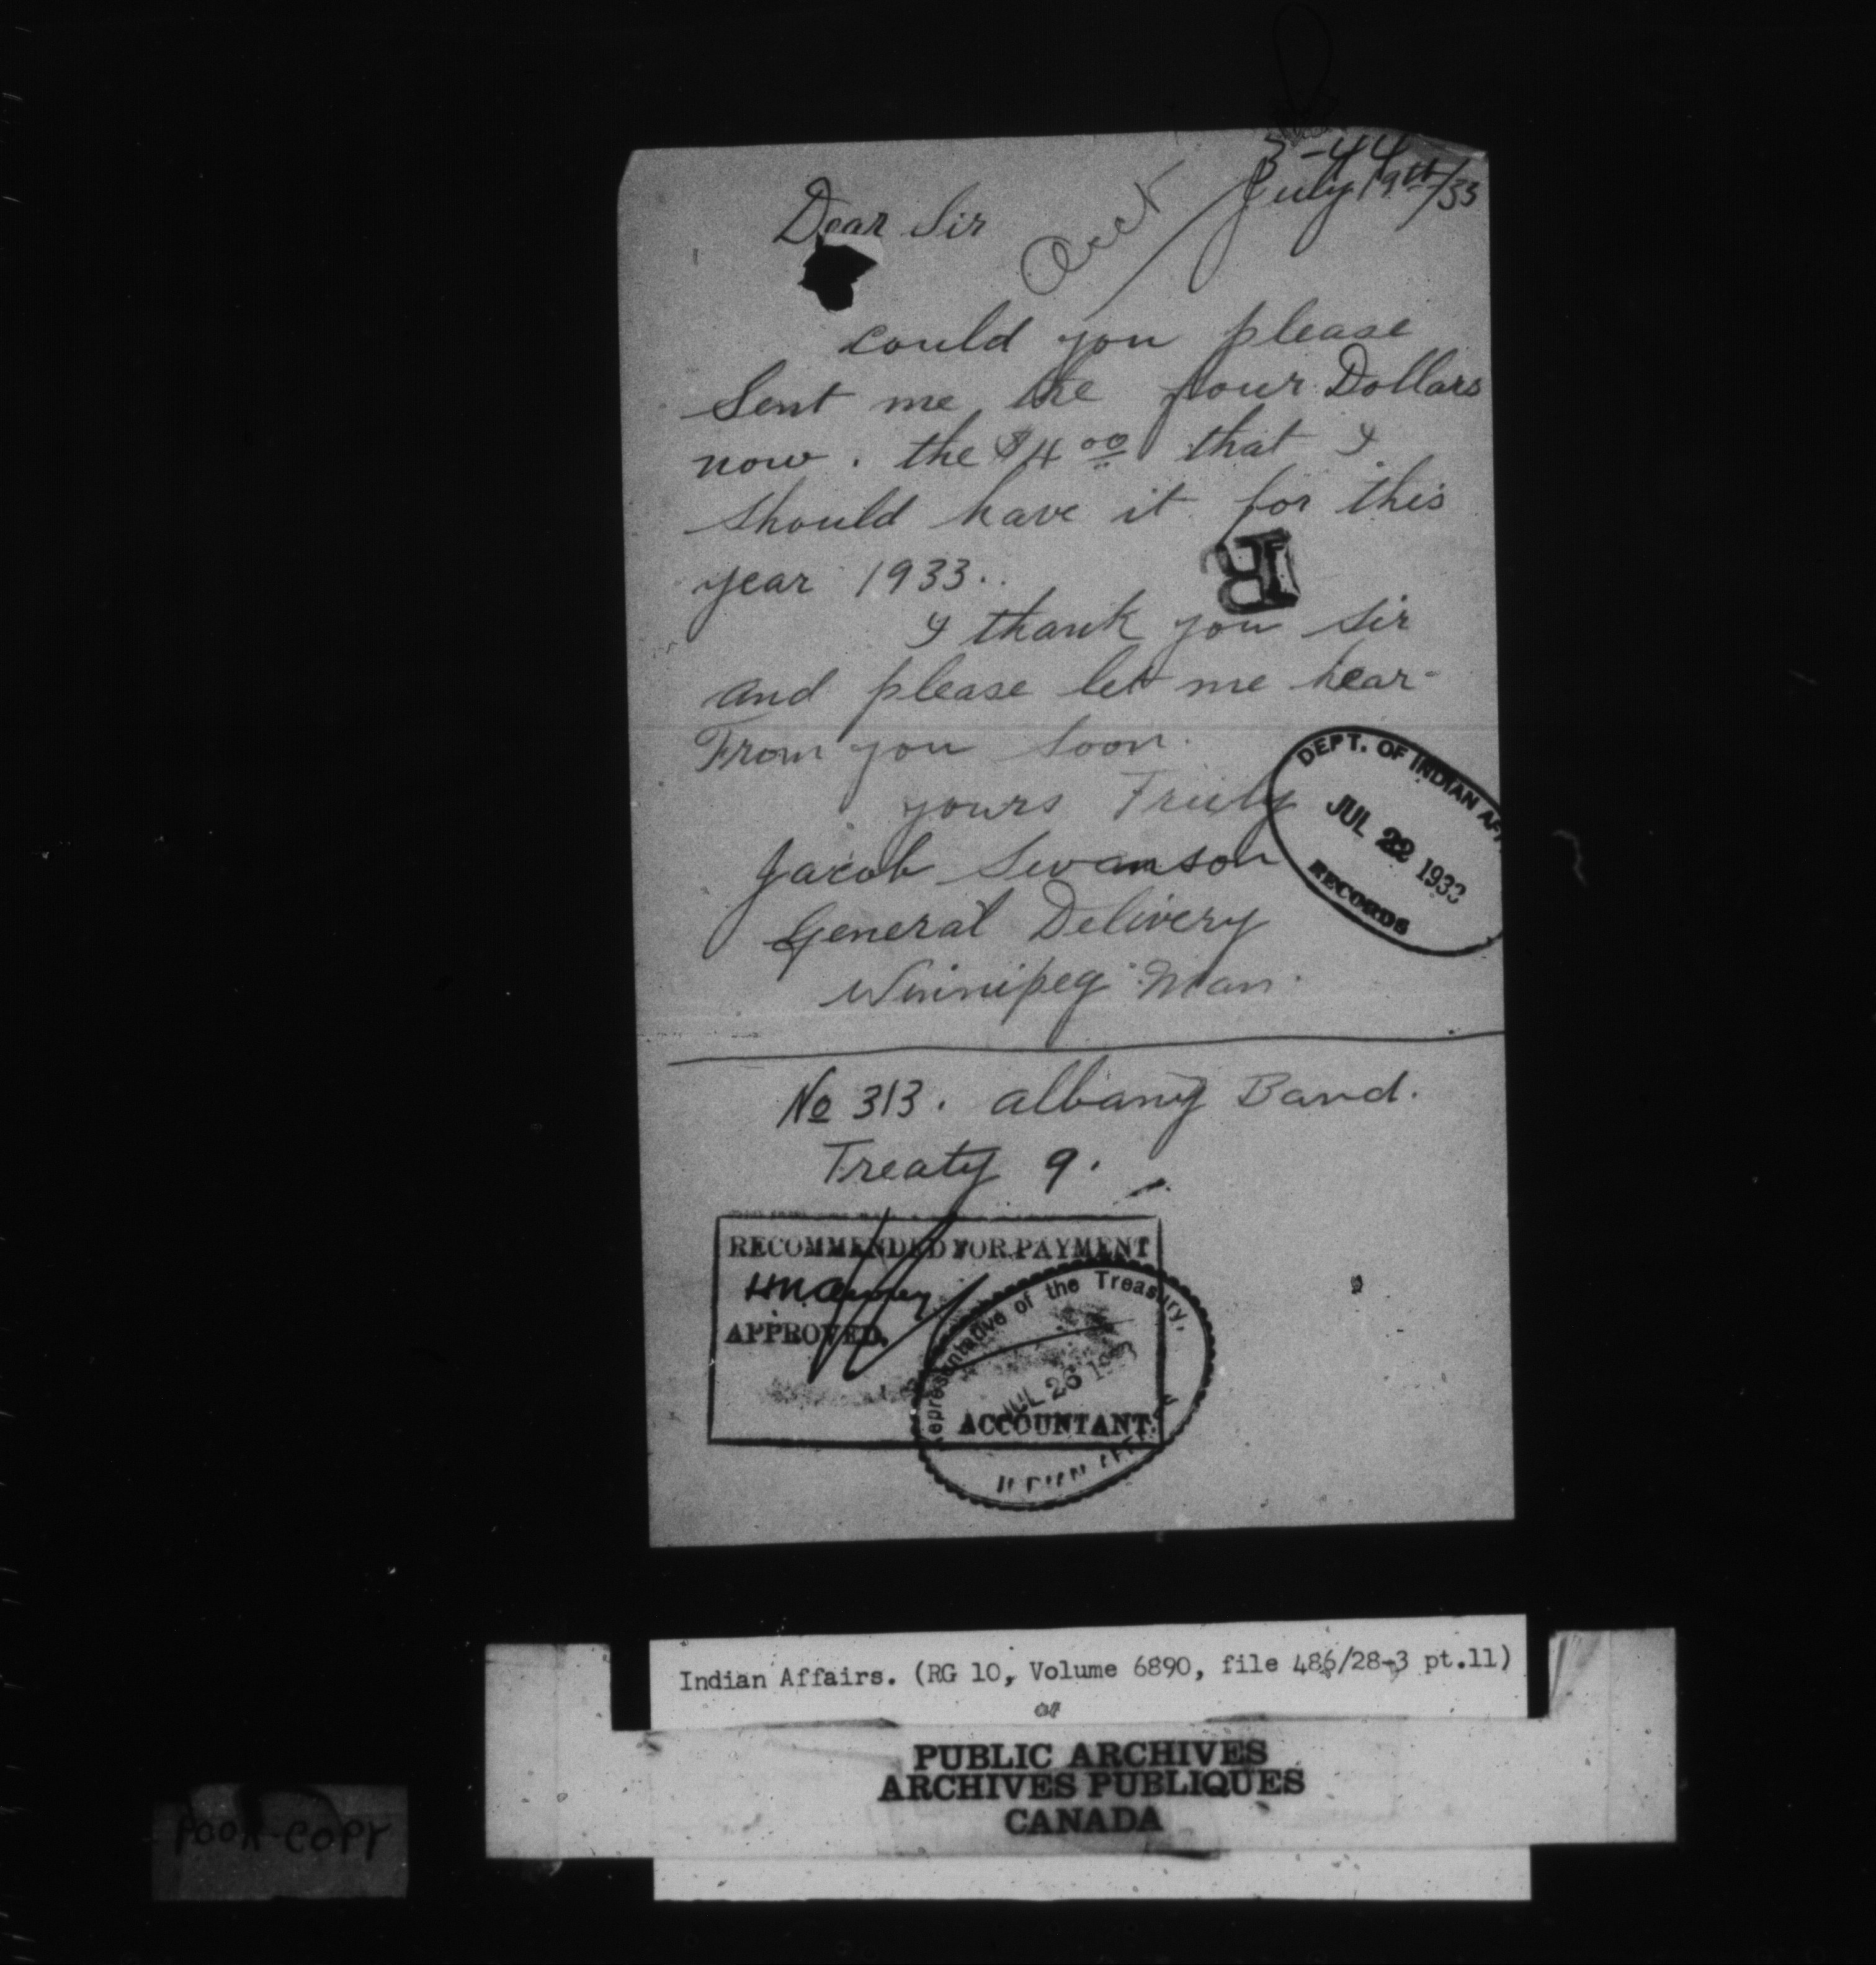 3-44
July 19th/33
Dear Sir
could you please
Sent me the four Dollars
now. the $4 00 that I
should have it for this
year 1933..
I thank you sir
and please let me hear
From you soon.
yours Truly
Jacob Swanson
General Delivery
Winnipeg Man.
DEPT. OF INDIAN AFF
JUL 22 1933
RECORDS
No 313. albany Band.
Treaty 9.
RECOMMENDED FOR PAYMENT
APPROVED,
ACCOUNTANT.
epresentative of the Treasury,
JUL 26 1933
INDIAN
Indian Affairs. (RG 10, Volume 6890, file 486/28-3 pt.11)
PUBLIC ARCHIVES
ARCHIVES PUBLIQUES
CANADA
POOR COPY